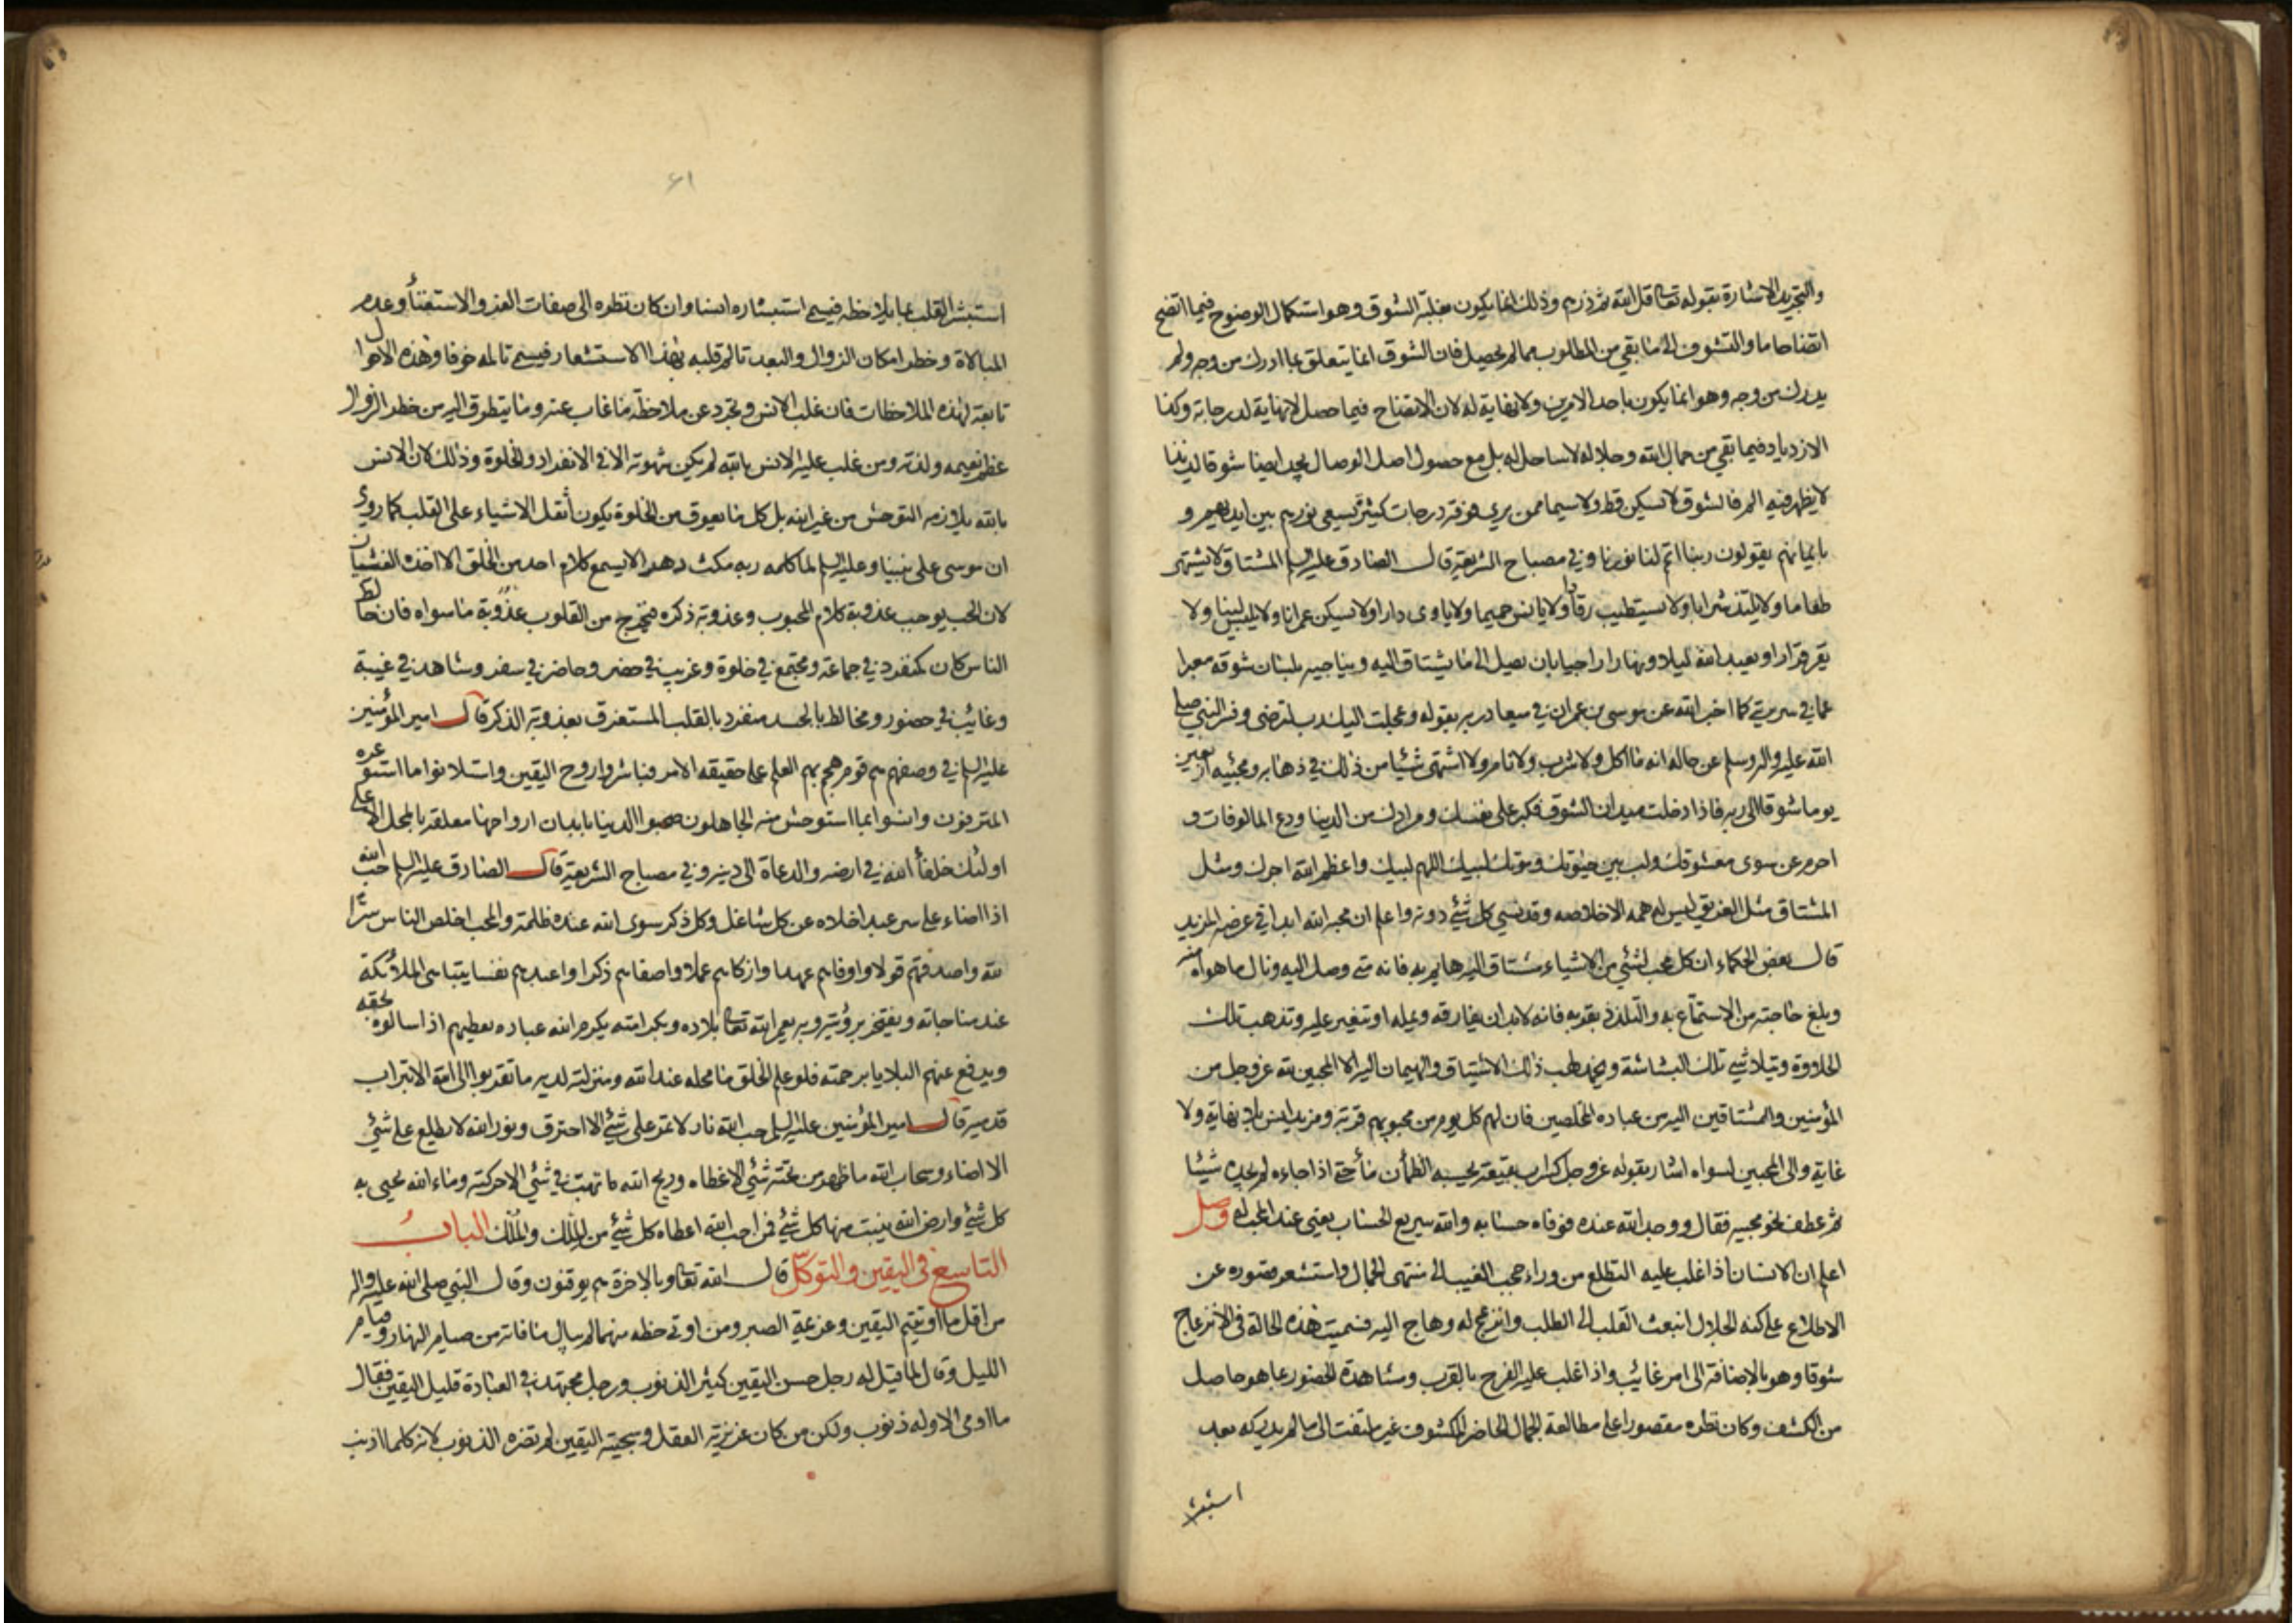 والتجريد الاشارة بقوله تعالى قل الله ثم ذرهم وذلك انما يكون بغلبة الشوق وهو استكمال الوضوح فيما اتضح
اتضاحا ما والتشوق الى ما بقي من المطلوب مما لم يحصل فان الشوق انما يتعلق بما ادرك من وجه ولم
يدرك من وجه وهو انما يكون باحد الامرين ولا نهاية له لان الاتضاح فيما حصل لا نهاية لدرجاته وكذا
الازدياد فيما بقي من جمال الله وجلاله لا ساحل له بل مع حصول اصل الوصال يجد ايضا شوقا لذيذا
لا يظهر فيه الم فالشوق لا يسكن قط ولا سيما ممن يرى فوقه درجات كثيرة يسعى نورهم بين ايديهم و
بايمانهم يقولون ربنا اتمم لنا نورنا وفي مصباح الشريعة قال الصادق عليه السلم المشتاق لا يشتهي
طعاما ولا يلتذ شرابا ولا يستطيب رقادا ولا يانس حميما ولا ياوى دارا ولا يسكن عمرانا ولا يلبس لينا ولا
يقر قرارا ويعبد الله ليلا ونهارا راجيا بان يصل الى ما يشتاق اليه ويناجيه بلسان شوقه معبرا
عما في سريرته كما اخبر الله عن موسى بن عمران في ميعاد ربه بقوله وعجلت اليك رب لترضى وفسر النبي صلى
الله عليه واله وسلم عن حاله انه ما اكل ولا شرب ولا نام ولا اشتهى شيئا من ذلك في ذهابه ومجيئه اربعين
يوما شوقا الى ربه فاذا دخلت ميدان الشوق فكبر على نفسك ومرادك من الدنيا ودع المالوفات و
احرم عن سوى معشوقك ولب بين حيوتك وموتك لبيك اللهم لبيك واعظم الله اجرك ومثل
المشتاق مثل الغريق ليس له همة الا خلاصه وقد نسي كل شئ دونه واعلم ان محبة الله ابدا في عرضة المزيد
قال بعض الحكماء ان كل محب لشئ من الاشياء مشتاق اليه هايم به فانه متى وصل اليه ونال ما هواه منه
وبلغ حاجته من الاستمتاع به والتلذذ بقربه فانه لابد ان يفارقه ويمله او يتغير عليه وتذهب تلك
الحلاوة ويتلاشي تلك البشاشة ويخمد لهب ذلك الاشتياق والهيمان اليه الا المحبين لله عز وجل من
المؤمنين والمشتاقين اليه من عباده المخلصين فان لهم كل يوم من محبوبهم قربة ومزيد انس بلا نهاية ولا
غاية والى المحبين لسواه اشار بقوله عز وجل كسراب بقيعة يحسبه الظمأن ماء حتى اذا جاءه لم يجده شيئا
ثم عطف نحو محبيه فقال ووجد الله عنده فوفاه حسابه والله سريع الحساب يعني عند المحب له وصل
اعلم ان الانسان اذا غلب عليه التطلع من وراء حجب الغيب الى منتهى الجمال واستشعر قصوره عن
الاطلاع على كنه الجلال انبعث القلب الى الطلب وانزعج له وهاج اليه فسميت هذه الحالة في الانزعاج
شوقا وهو بالاضافة الى امر غائب واذا غلب عليه الفرح بالقرب ومشاهدة الحضور بما هو حاصل
من الكشف وكان نظره مقصورا على مطالعة الجمال الحاضر المكشوف غير ملتفت الى ما لم يدركه بعد
استبشر
٦١
استبشر القلب بما يلاحظه فيسمى استبشاره انسا وان كان نظره الى صفات العز والاستغنأ وعدم
المبالاة وخطر امكان الزوال والبعد تالم قلبه بهذا الاستشعار فيسمى تالمه خوفا وهذه الاحوال
تابعة لهذه الملاحظات فان غلب الانس وتجرد عن ملاحظة ما غاب عنه وما يتطرق اليه من خطر الزوال
عظم نعيمه ولذته ومن غلب عليه الانس بالله لم يكن شهوته الا في الانفراد والخلوة وذلك لان الانس
بالله يلازمه التوحش من غير الله بل كل ما يعوق من الخلوة يكون أثقل الاشياء على القلب كما روي
ان موسى على نبينا وعليه السلم لما كلمه ربه مكث دهرا لا يسمع كلام احد من الخلق الا اخذه الغشيان
لان الحب يوجب عذوبة كلام المحبوب وعذوبة ذكره فيخرج من القلوب عذوبة ما سواه فان خالط
الناس كان كمنفرد في جماعة ومجتمع في خلوة وغريب في حضر وحاضر في سفر وشاهد في غيبة
وغائب في حضور ومخالط بالجسد منفرد بالقلب المستغرق بعذوبة الذكر قال امير المؤمنين
عليه السلم في وصفهم هم قوم هجم بهم العلم على حقيقة الامر فباشروا روح اليقين واستلانوا ما استوعره
المترفون وانسوا بما استوحش منه الجاهلون صحبوا الدنيا بابدان ارواحها معلقة بالمحل الاعلى
اولئك خلفأ الله في ارضه والدعاة الى دينه وفي مصباح الشريعة قال الصادق عليه السلم حب الله
اذا اضاء على سر عبد اخلاه عن كل شاغل وكل ذكر سوى الله عنده ظلمة والمحب اخلص الناس سرا
لله واصدقهم قولا واوفاهم عهدا وازكاهم عملا واصفاهم ذكرا واعبدهم نفسا يتباهى الملائكة
عند مناجاته ويفتخر برؤيته وبه يعمر الله تعالى بلاده وبكرامته يكرم الله عباده يعطيهم اذا سالوه بحقه
ويدفع عنهم البلايا برحمته فلو علم الخلق ما محله عند الله ومنزلته لديه ما تقربوا الى الله الا بتراب
قدميه قال امير المؤمنين عليه السلم حب الله نار لا تمر على شئ الا احترق ونور الله لا يطلع على شئ
الا اضاء وسحاب الله ما ظهر من تحته شئ الا غطاه وريح الله ما تهب في شئ الا حركته وماء الله يحيى به
كل شئ وارض الله ينبت منها كل شئ فمن احب الله اعطاه كل شئ من المِلك والمُلك الباب
التاسع في اليقين والتوكل قال الله تعالى وبالاخرة هم يوقنون وقال النبي صلى الله عليه واله
من اقل ما اوتيتم اليقين وعزيمة الصبر ومن اوتي حظه منهما لم يبال ما فاته من صيام النهار وقيام
الليل وقال لما قيل له رجل حسن اليقين كثير الذنوب ورجل مجتهد في العبادة قليل اليقين فقال
ما ادمي الا وله ذنوب ولكن من كان غريزته العقل وسجيته اليقين لم تضره الذنوب لانه كلما اذنب